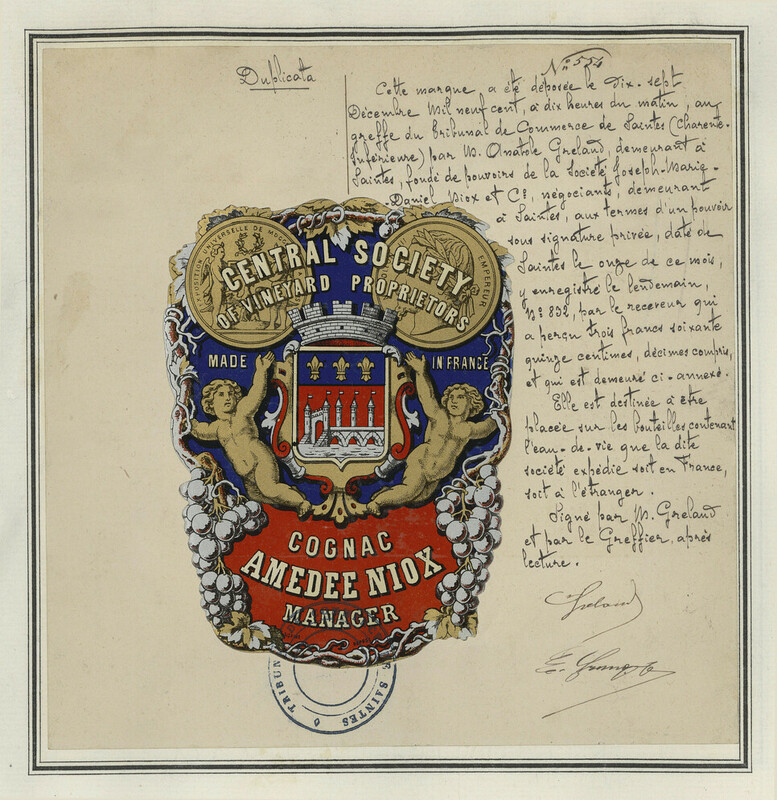 Duplicata
Nº 554
Cette marque a été déposée le dix-sept
Décembre Mil neuf cent, à dix heures du matin, au
greffe du Tribunal de Commerce de Saintes (Charente-
Inférieure) par M. Anatole Greland, demeurant à
Saintes, fondé de pouvoirs de la Société Joseph-Marie-
Daniel Niox et Cie, négociants, demeurant
à Saintes, aux termes d'un pouvoir
sous signature privée, daté de
Saintes le onze de ce mois,
y enregistré le lendemain,
Nº 832, par le receveur qui
a perçu trois francs soixante
quinze centimes, décimes compris,
et qui est demeuré ci-annexé.
Elle est destinée à être
placée sur les bouteilles contenant
l'eau-de-vie que la dite
société expédie soit en France,
soit à l'étranger.
Signé par M. Greland
et par le Greffier, après
lecture.
Greland
EXPOSITION UNIVERSELLE DE
EMPEREUR
CENTRAL SOCIETY
OF VINEYARD PROPRIETORS
MADE IN FRANCE
COGNAC
AMEDEE NIOX
MANAGER
TRIBUN
DE SAINTES